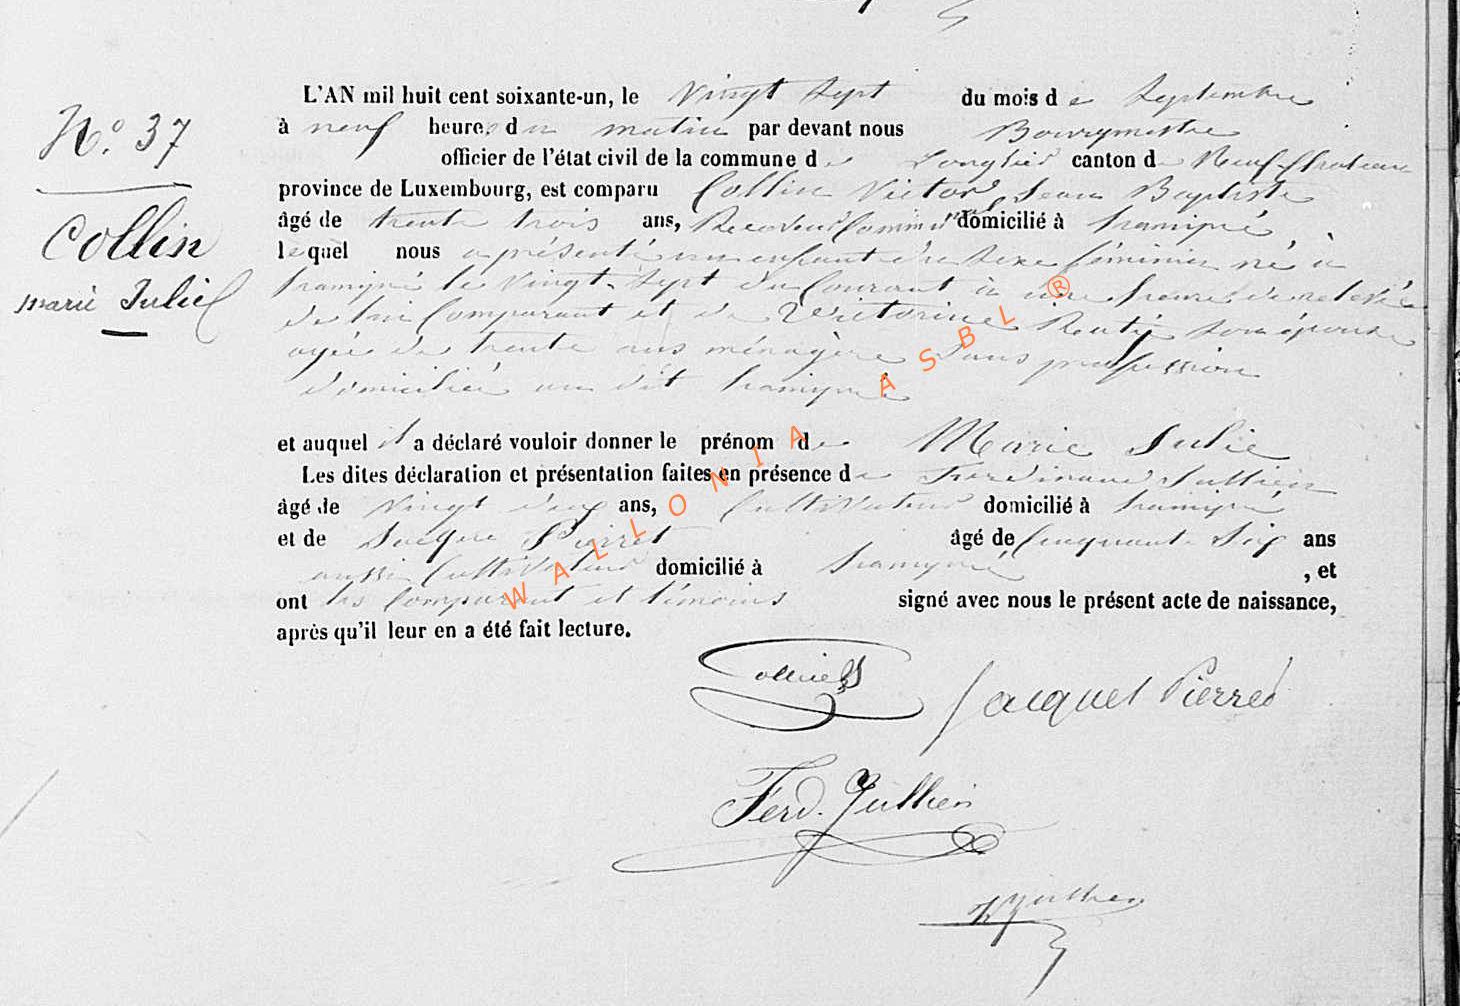 N.° 37
Collin
marie Julie
L'AN mil huit cent soixante-un, le Vingt Sept du mois de Septembre
à neuf heures du matin par devant nous Bourgmestre
officier de l'état civil de la commune de Longlier canton de Neufchateau
province de Luxembourg, est comparu Collin Victor Jean Baptiste
âgé de trente trois ans, Receveur Communal domicilié à hamipré,
lequel nous a présenté un enfant du sexe féminin né à
hamipré le Vingt-Sept du Courant à une heure de relevée
de lui Comparant et de Victorine son épouse
agée de trente ans ménagère Sans profession
domiciliée au dit hamipré
et auquel il a déclaré vouloir donner le prénom de Marie Julie
Les dites déclaration et présentation faites en présence de Ferdinand Jullien
âgé de Vingt ans, Cultivateur domicilié à hamipré
et de Jacque Pierret âgé de Cinquante Six ans
aussi Cultivateur domicilié à hamipré , et
ont les Comparant et témoins signé avec nous le présent acte de naissance,
après qu'il leur en a été fait lecture.
Collin Jacques Pierret
Ferd. Jullien
WALLONIA ASBL ®